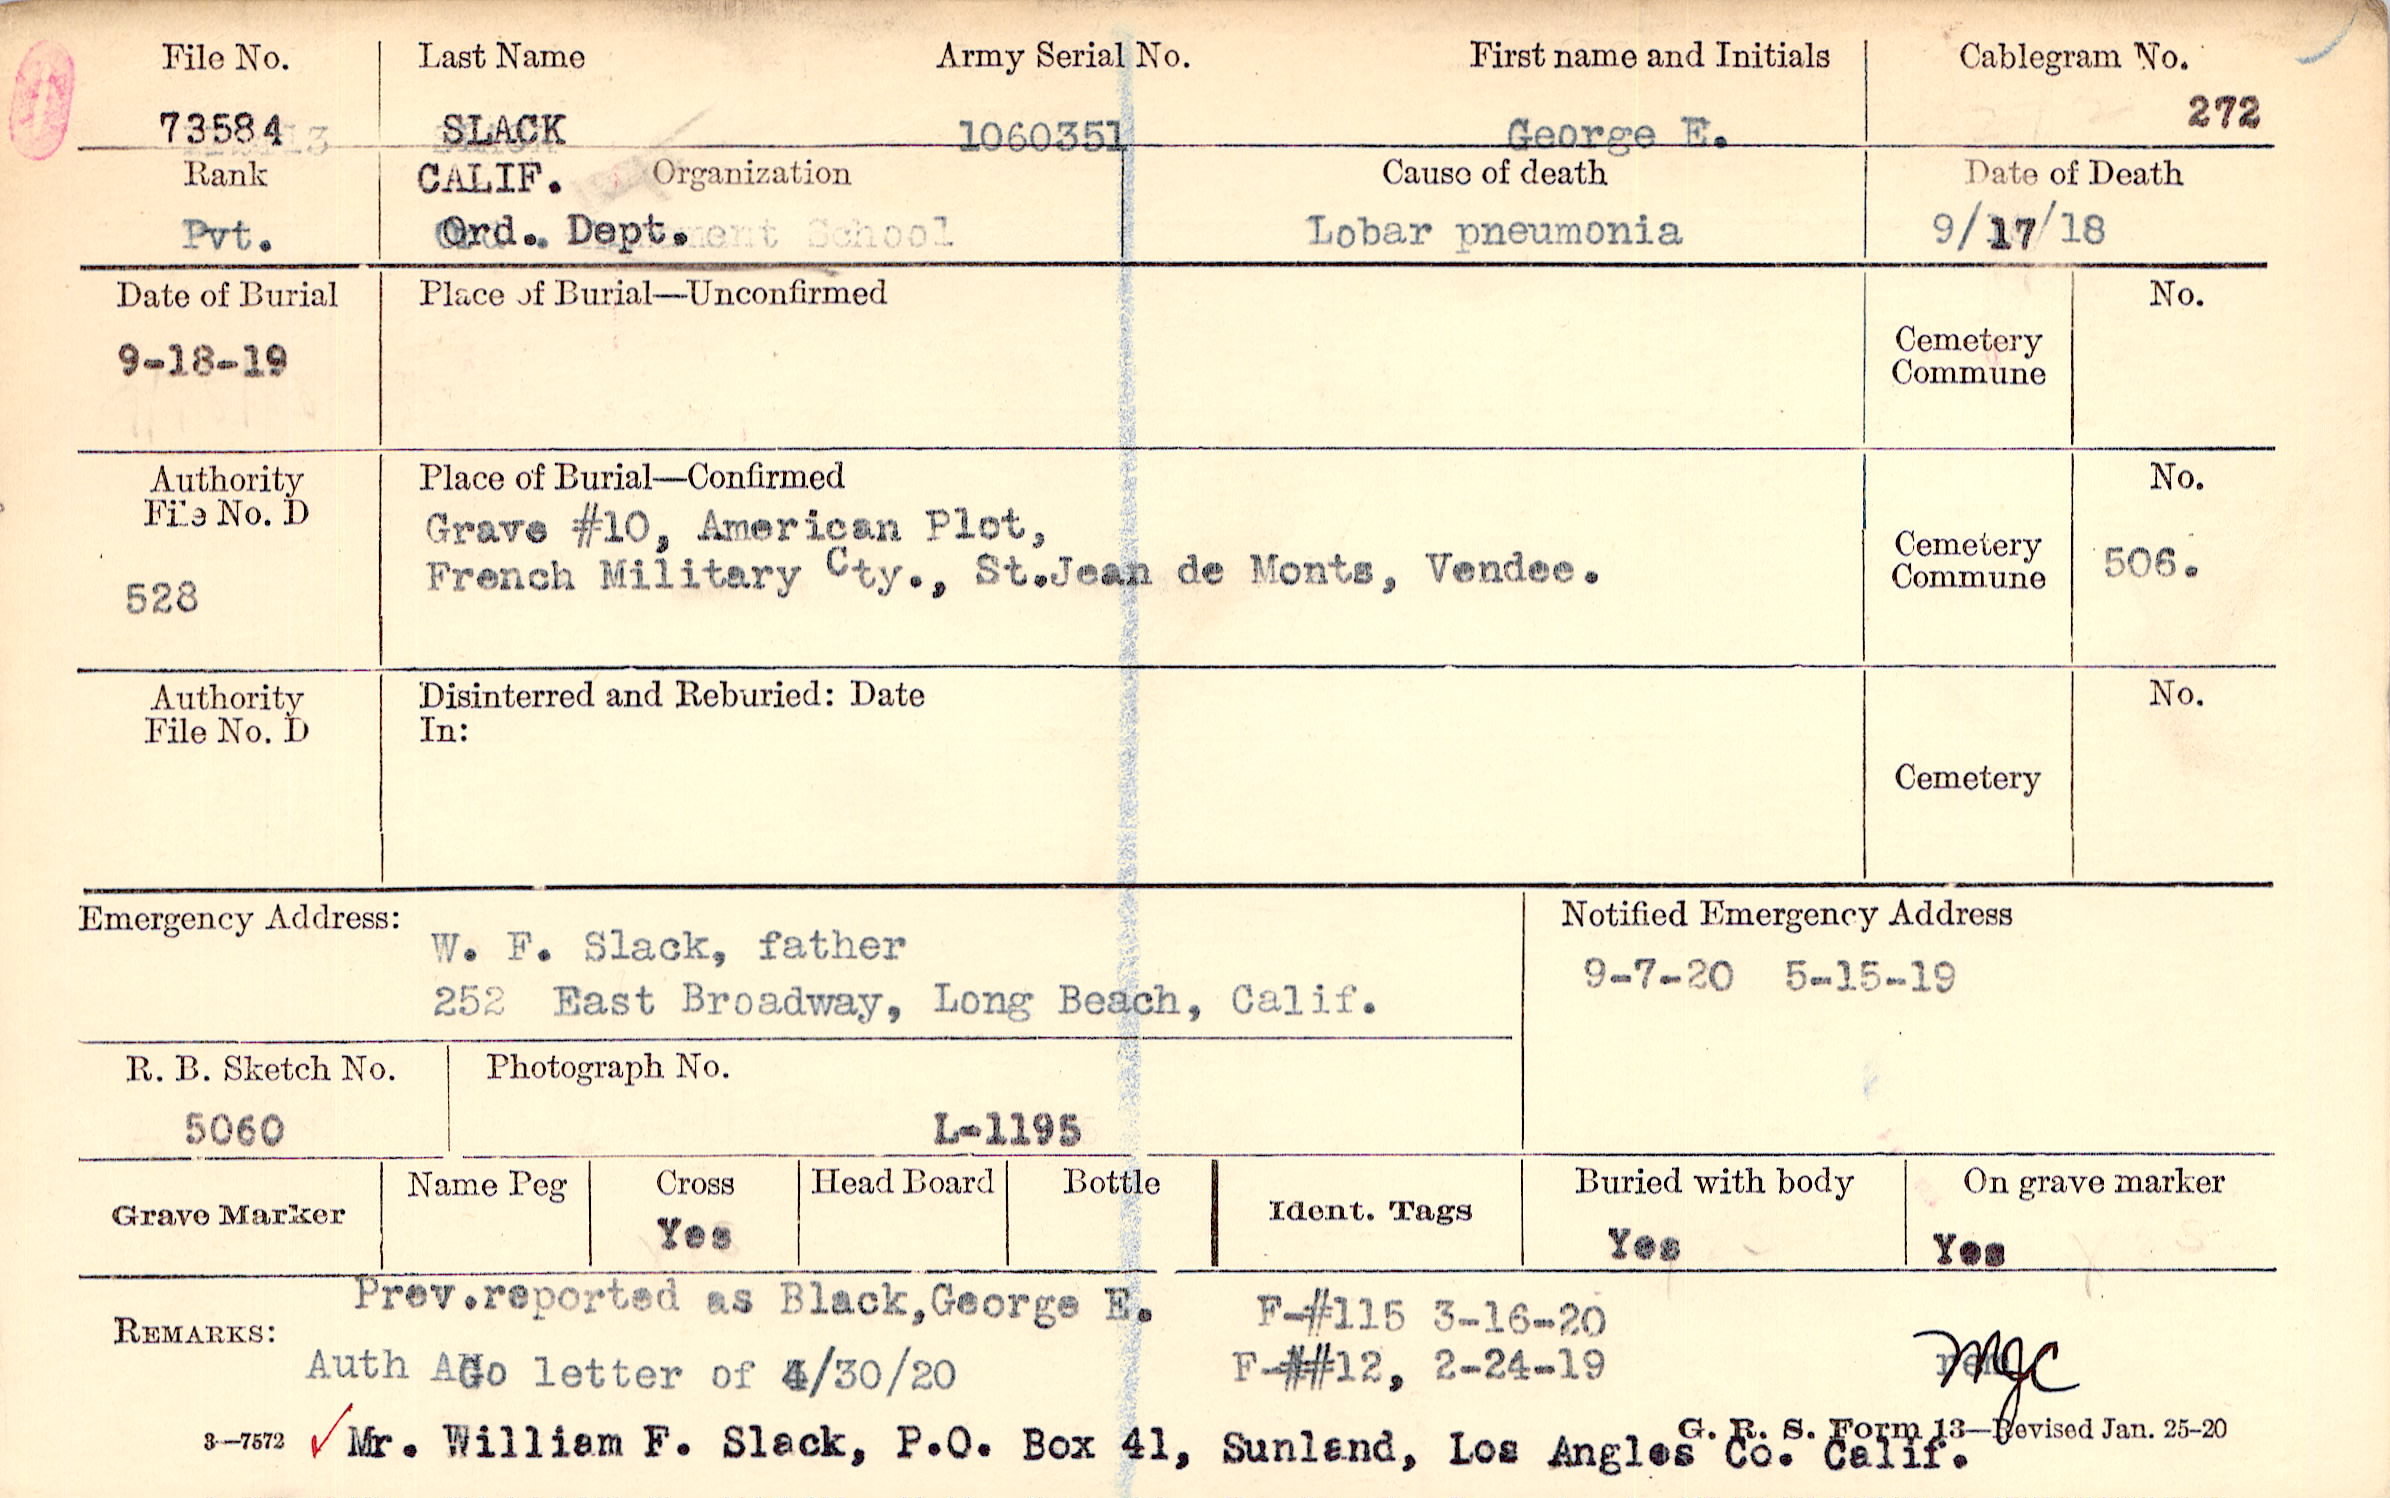 File No. Last Name Army Serial No. First name and Initials Cablegram No.
73584 SLACK 1060351 George E. 272
Rank CALIF. Organization Cause of death Date of Death
Pvt. Ord. Dept. ment School Lobar pneumonia 9/17/18
Date of Burial Place of Burial—Unconfirmed No.
9-18-19 Cemetery
Commune
Authority Place of Burial—Confirmed No.
File No. D Grave #10, American Plot,
528 French Military Cty., St.Jean de Monts, Vendee. Cemetery
Commune 506.
Authority Disinterred and Reburied: Date No.
File No. D In:
Cemetery
Emergency Address: Notified Emergency Address
W. F. Slack, father 9-7-20 5-15-19
252 East Broadway, Long Beach, Calif.
R. B. Sketch No. Photograph No.
5060 L-1195
Grave Marker Name Peg Cross Head Board Bottle Ident. Tags Buried with body On grave marker
Yes Yes Yes
Prev.reported as Black,George E. F-#115 3-16-20
REMARKS:
Auth AGo letter of 4/30/20 F-##12, 2-24-19 MJC
3—7572 G. R. S. Form 13—Revised Jan. 25-20
Mr. William F. Slack, P.O. Box 41, Sunland, Los Angles Co. Calif.